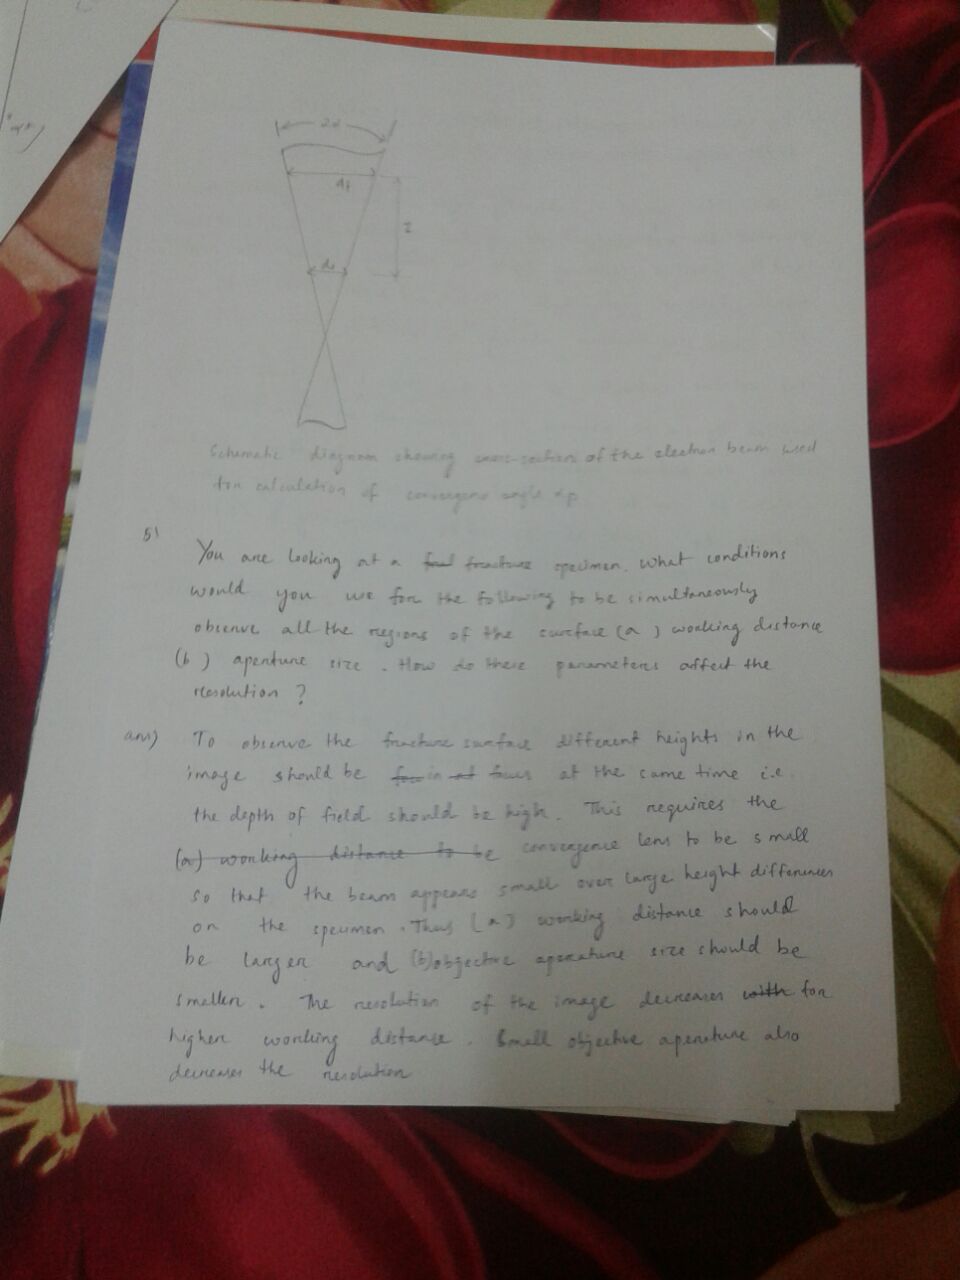 2α
df
z
d₀
Schematic diagram showing cross-section of the electron beam used
for calculation of convergence angle αp
5)
You are looking at a fracture specimen. What conditions
would you use for the following to be simultaneously
observe all the regions of the surface (a) working distance
(b) aperture size. How do these parameters affect the
resolution ?
ans) To observe the fracture surface different heights in the
image should be in focus at the same time i.e.
the depth of field should be high. This requires the
(a) working distance to be convergence lens to be small
so that the beam appears small over large height differences
on the specimen. Thus (a) working distance should
be larger and (b) objective aperature size should be
smaller. The resolution of the image decreases with for
higher working distance. Small objective aperature also
decreases the resolution